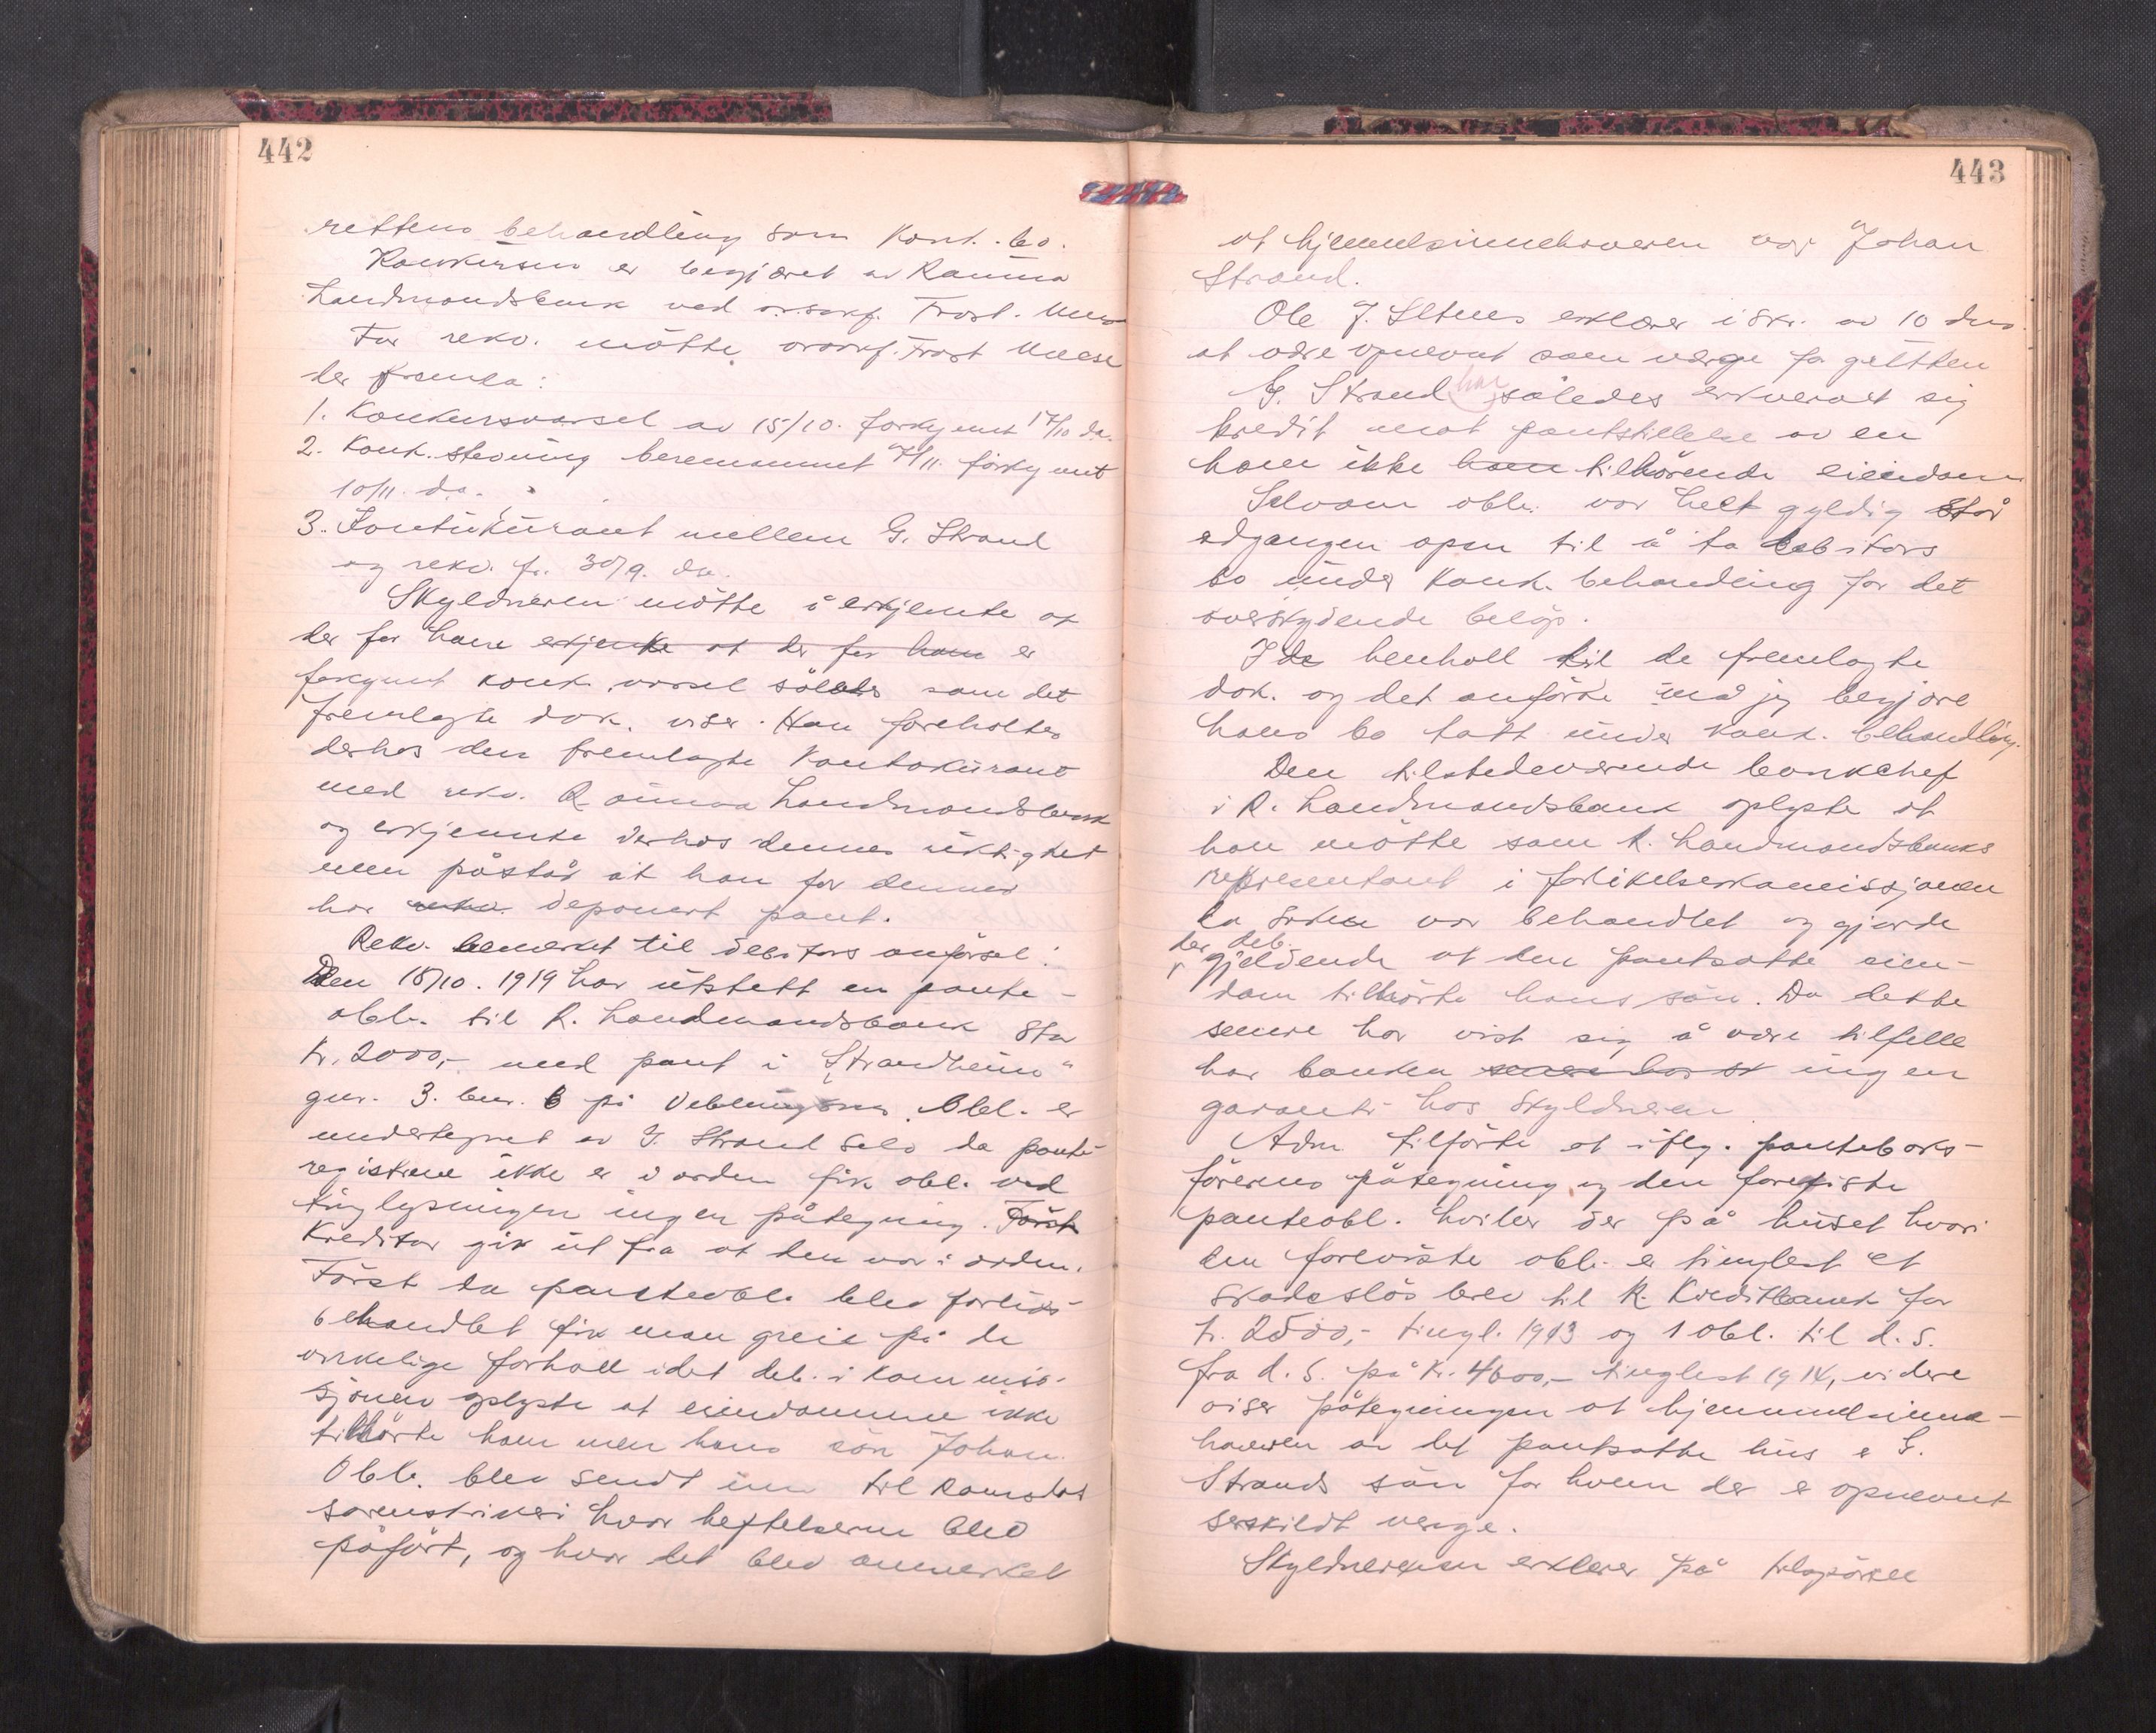 442
rettens behandling som konk. bo.
Konkursen er begjæret av Rauma
Landmandsbank ved o.r.sakf. Frost.
For rekv. møtte orsakf. Frost
der fremla:
1. Konkursvarsel av 15/10. forkynt 17/10 ds.
2. Konk. stevning berammet 7/11. forkynt
10/11. d.a.
3. Kontukurant mellem G. Strand
og rekv. fr. 30/9. ds.
Skyldneren møtte å erkjente at
der for ham erkjente at der for ham er
forkynt konk. varsel således som det
fremlagte dok. viser. Han foreholtes
derhos den fremlagte Kontokurant
med rekv. Rauma Landmandsbank
og erkjennte derhos dennes riktighet
men påstår at han for dennes
har rekv. deponert pant.
Rekv. bemerket til debitors anførsel:
Den 18/10. 1919 har utstett en pante-
obl. til R. Landmandsbank stor
kr. 2000,- med pant i "Strandheim"
gnr. 3. bnr. 6 på Veblungsnes. Obl. er
undertegnet av G. Strand selv da pante-
registrene ikke er i orden fik obl. ved
tinglysningen ingen påtegning. Først
Kreditor gik ut fra at den var i orden.
Først da panteobl. blev forliks-
behandlet fik man greie på de
virkelige forholl idet deb. i kommis-
sjonen oplyste at eiendommen ikke
tilhørte ham men hans søn Johan.
Obl. blev sendt inn til Romsdal
sorenskriveri hvor heftelserne blev
påført, og hvor det blev anmerket
443
at hjemmelsinnehaveren var Johan
Strand.
Ole J. Setnes erklærer i skr. av 10 ds.
at være opnevnt som verge for gutten
G. Strand har således erkvervet sig
kredit mot pantstillelse av en
ham ikke ham tilhørende eiendom
Selvom obl. var helt gyldig står
adgangen open til å ta debitors
bo under konk. behandling for det
overskydende beløp.
I de henholl til de fremlagte
dok. og det anførte må jeg begjære
hans bo tatt under konk. behandling.
Den tilstedeværende bankchef
i R. Landmandsbank oplyste at
han møtte som R. Landmandsbanks
representant i forlikelseskomissjonen
da saken var behandlet og gjorde
der deb.
gjeldende at den pantsatte eien-
dom tilhørte hans søn. Da dette
senere har vist sig å være tilfelle
har banken ingen
garanti hos skyldneren.
Adm tilførte at iflg. panteboks-
førerens påtegning og den foreviste
panteobl. hviler der på huset hvori
den foreviste obl. er tinglest et
skadesløsbrev til R. Kreditbank for
kr. 2500,- tingl. 1913 og 1 obl. til d.s.
fra d.s. på kr. 4600,- tinglest 1914, videre
viser påtegningen at hjemmelsinne-
haveren av det pantsatte hus e G.
Strands søn for hvem der e opnevnt
serskildt verge.
Skyldneren erklærer på tilspørsel